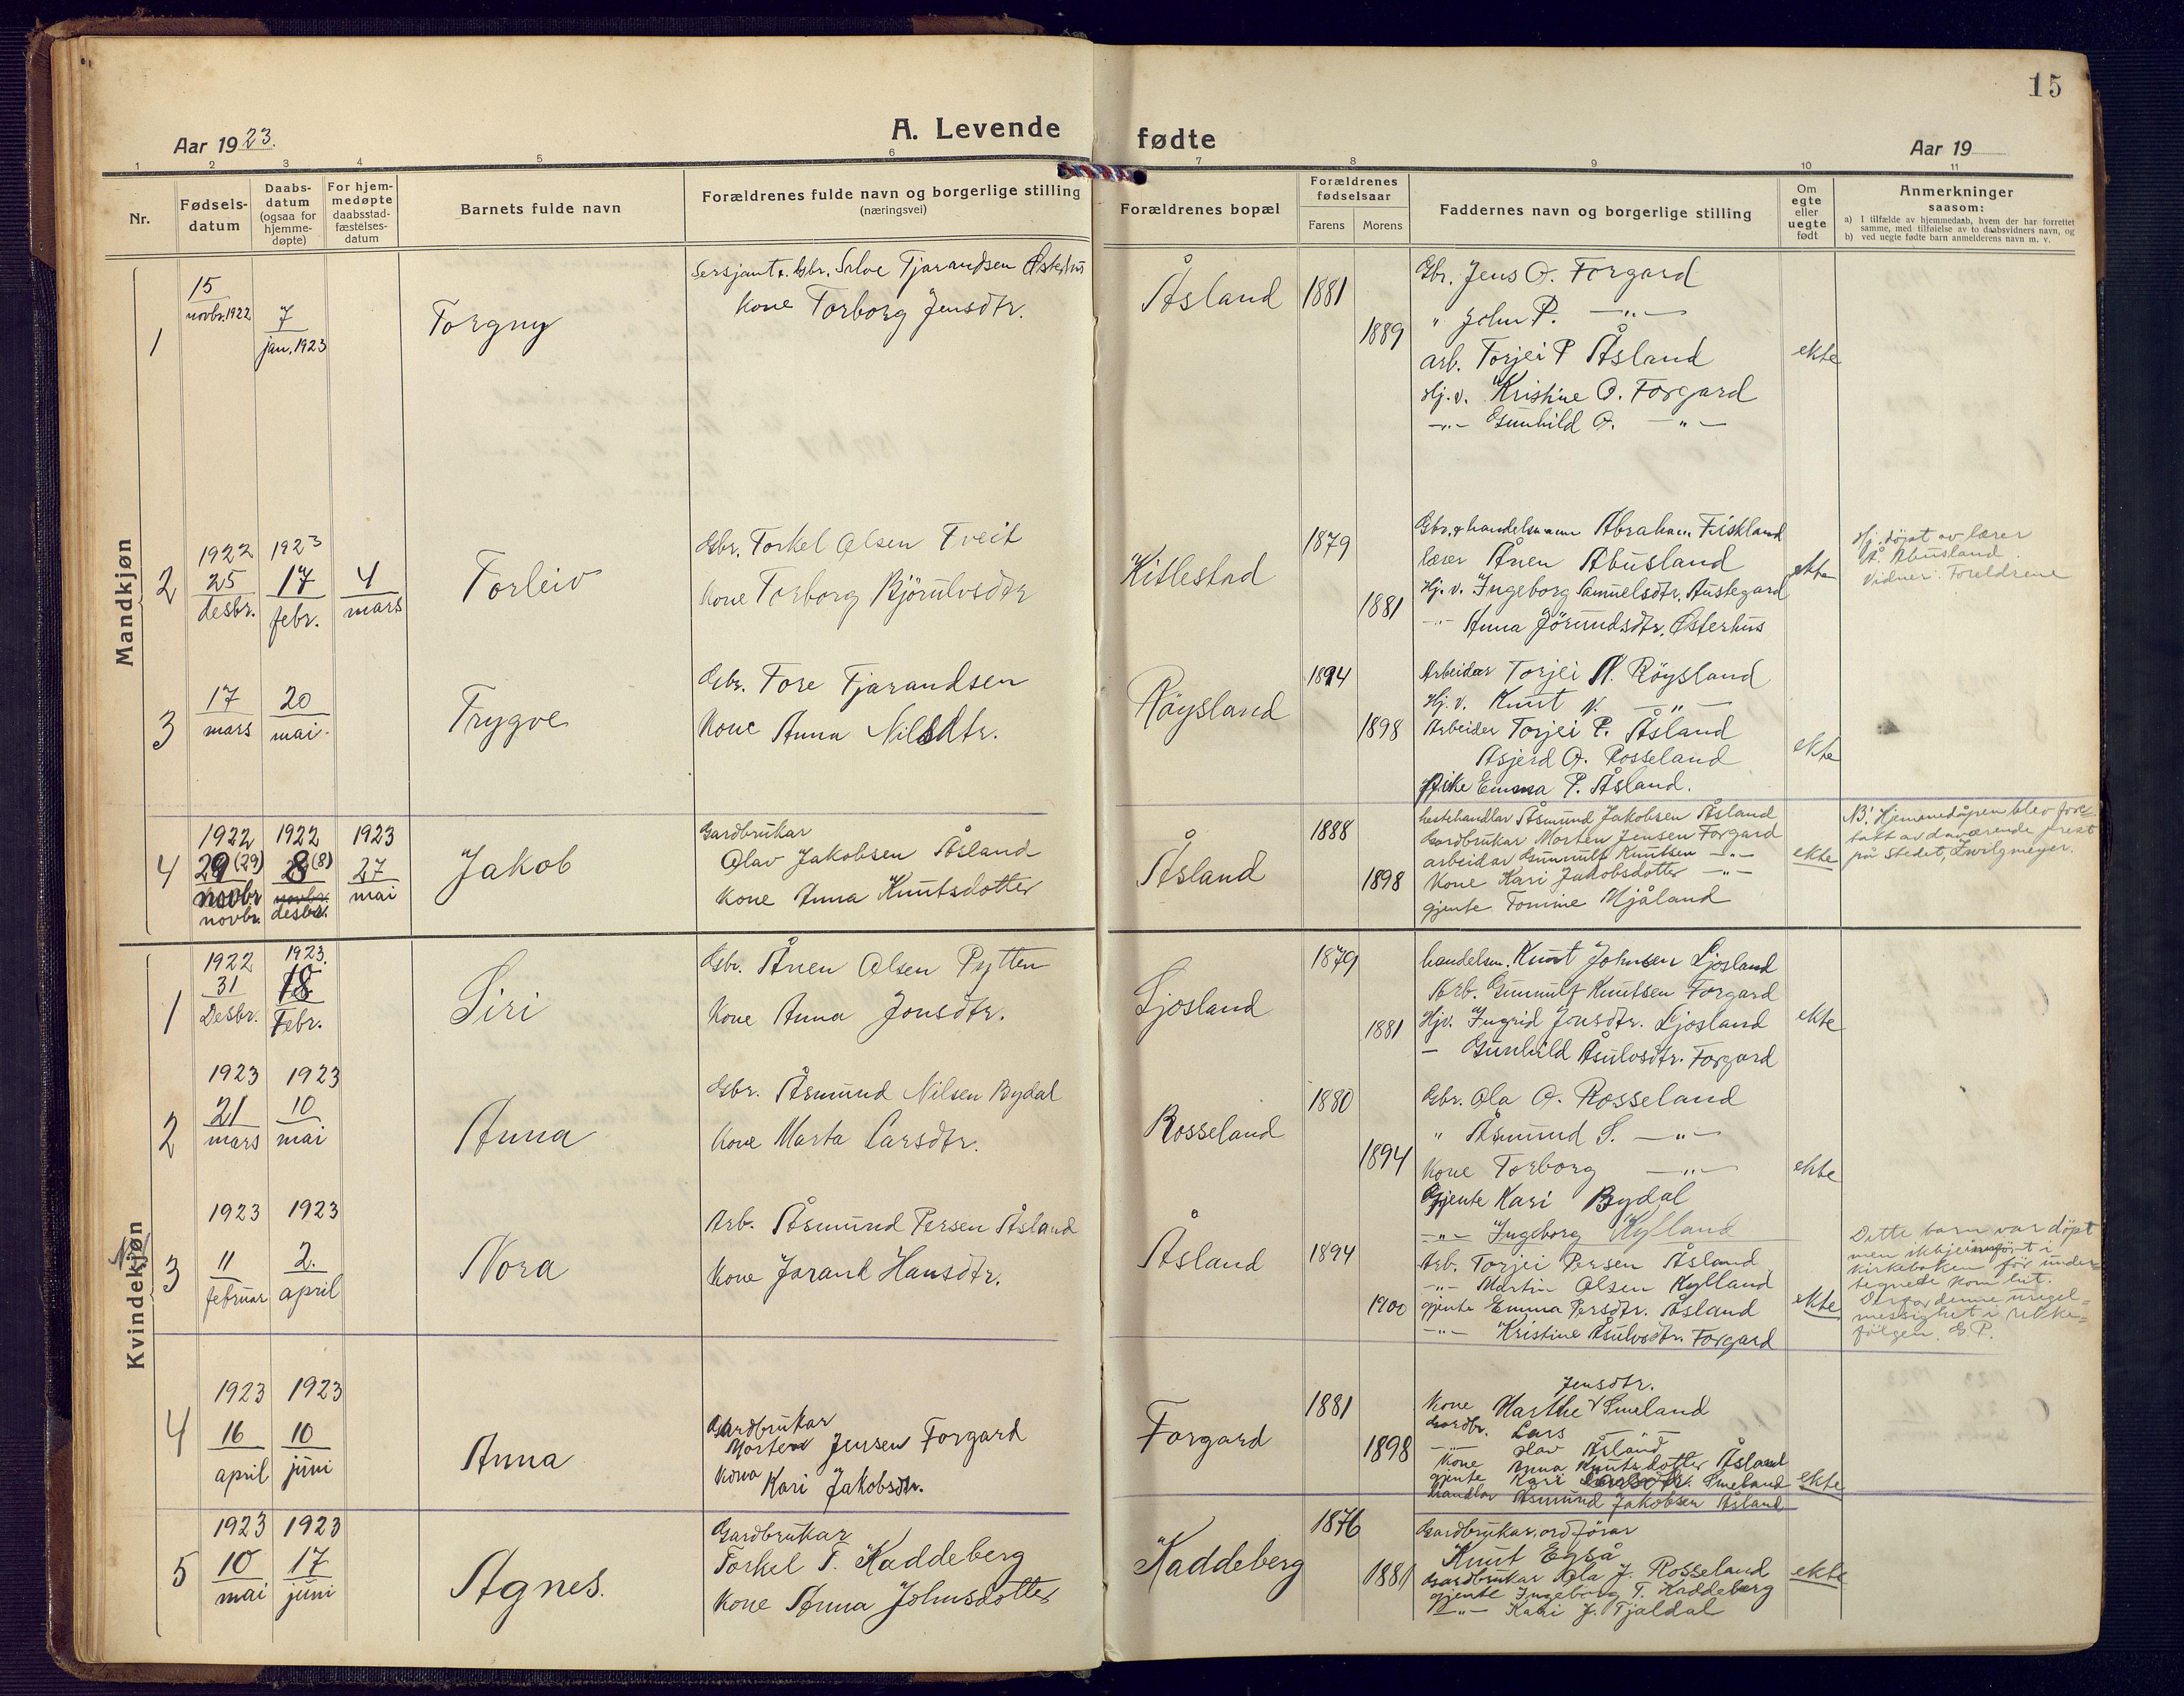 15
A. Levende fødte
Aar 1923.
Aar 19
1 2 3 4 5 6 7 8 9 10 11
Nr.
Fødsels-
datum
Daabs-
datum
(ogsaa for
hjemme-
døpte)
For hjem-
medøpte
daabsstad-
fæstelses-
datum
Barnets fulde navn
Forældrenes fulde navn og borgerlige stilling
(næringsvei)
Forældrenes bopæl
Forældrenes
fødselsaar
Farens Morens
Faddernes navn og borgerlige stilling
Om
egte
eller
uegte
født
Anmerkninger
saasom:
a) I tilfælde av hjemmedaab, hvem der har forrettet
samme, med tilføielse av to daabsvidners navn, og
b) ved uegte fødte barn anmelderens navn m. v.
Mandkjøn
1
15
novbr. 1922
7
jan. 1923
Torgny
Sersjant & Gbr. Salve Tjarandsen Østerhus
Kone Torborg Jensdtr.
Åsland
1881
1889
Gbr. Jens O. Forgard
" John P. —"—
arb. Torjei P Åsland
Hj. v. Kristine O. Forgard
—"— Gunhild O. —"—
ekte
2
1922
25
desbr.
1923
17
febr.
4
mars
Torleiv
Gbr. Torkel Olsen Tveit
Kone Torborg Bjørulvsdtr
Kitlestad
1879
1881
Gbr. & handelsmann Abraham Fiskland
lærer Ånen Abusland
Hj. v. Ingeborg Samuelsdtr. Austegard
—"— Anna Jörundsdtr. Østerhus
ekte
Hj. döpt av lærer
Å. Abusland.
Vidner: Foreldrene
3
17
mars
20
mai.
Trygve
Gbr. Tore Tjarandsen
Kone Anna Nilsdtr.
Röysland
1894
1898
Arbeider Torjei N. Röysland
Hj. v. Knut N. —"—
Arbeider Torjei P. Åsland
Asjerd O. Rosseland
Pike Emma P. Åsland.
ekte
4
1922
29 (29)
novbr
novbr.
1922
8 (8)
novbr.
desbr.
1923
27
mai
Jakob
Gardbrukar
Olav Jakobsen Åsland
Kone Anna Knutsdotter
Åsland
1888
1898
hestehandlar Åsmund Jakobsen Åsland
Gardbrukar Morten Jensen Forgard
arbeidar Gunnulf Knutsen —"—
Kone Kari Jakobsdotter —"—
gjente Tomine Mjåland
ekte
NB! Hjemmedåpen blev fore-
tatt av daværende prest
på stedet, Zwilgmeyer.
Kvindekjøn
1
1922
31
Desbr.
1923.
18
Febr.
Siri
Gbr. Ånen Olsen Pytten
Kone Anna Jonsdtr.
Ljosland
1879
1881
handelsm. Knut Johnsen Ljosland
Arb. Gunnulf Knutsen Forgard
Hjv. Ingrid Jonsdtr. Ljosland
— Gunhild Åsulvsdtr. Forgard
ekte
2
1923
21
mars
1923
10
mai
Anna
Gbr. Åsmund Nilsen Bydal
Kone Marta Larsdtr.
Rosseland
1880
1894
Gbr. Ola O. Rosseland
" Åsmund S. —"—
Kone Torborg —"—
Gjente Kari Bydal
—"— Ingeborg Kylland
ekte
3
1923
11
februar
1923
2.
april
Nora
Arb. Åsmund Persen Åsland
Kone Jorand Hansdtr.
Åsland
1894
1900
Arb. Torjei Persen Åsland
—"— Martin Olsen Kylland
gjente Emma Persdtr. Åsland
—"— Kristine Åsulvsdtr. Forgard
ekte
Dette barn var döpt
men ikkje innfört i
kirkeboken för under-
tegnede kom hit.
Derfor denne uregel=
messighet i rekke=
fölgen. E P.
4
1923
16
april
1923
10
juni
Anna
Gardbrukar
Morten Jensen Forgard
Kona Kari Jakobsdtr.
Forgard
1881
1898
Jensdtr.
Kone Marthe Smeland
Gardbr. Lars —"—
—"— Olav Åsland
Kone Anna Knutsdotter Åsland
gjente Kari Larsdtr. Smeland
Handlar Åsmund Jakobsen Åsland
ekte
5
1923
10
mai
1923
17
juni
Agnes.
Gardbrukar
Torkel T. Kaddeberg
Kone Anna Johnsdotter
Kaddeberg
1876
1881
Gardbrukar, ordförar
Knut Egså
Gardbrukar Ola J. Rosseland
gjente Ingeborg T. Kaddeberg
—"— Kari J. Tjaldal
ekte